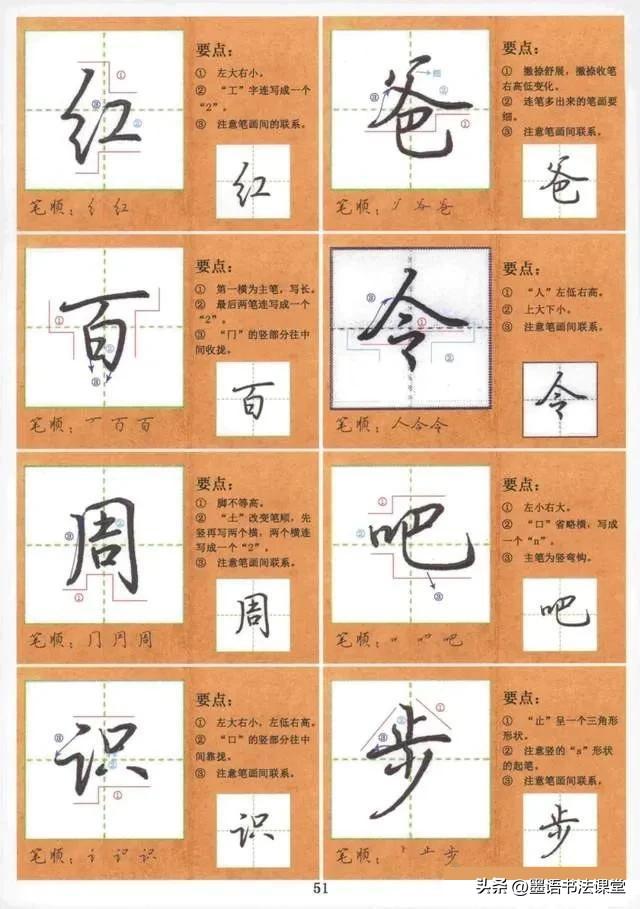 红
要点：
① 左大右小。
② “工”字连写成一个
“2”。
③ 注意笔画间的联系。
红
笔顺：纟红
爸
要点：
① 撇捺舒展，撇捺收笔
右高低变化。
② 连笔多出来的笔画要
细。
③ 注意笔画间联系。
爸
笔顺：爸
百
要点：
① 第一横为主笔，写长。
② 最后两笔连写成一个
“2”。
③ “门”的竖部分往中
间收拢。
百
笔顺：百百
令
要点：
① “人”左低右高。
② 上大下小。
③ 注意笔画间联系。
令
笔顺：人今令
周
要点：
① 脚不等高。
② “土”改变笔顺，先
竖再写两个横，两个横连
写成一个“2”。
③ 注意笔画间联系。
周
笔顺：冂冃周
吧
要点：
① 左小右大。
② “口”省略横，写成
一个“n”。
③ 主笔为竖弯钩。
吧
笔顺：吧
识
要点：
① 左大右小，左低右高。
② “口”的竖部分往中
间靠拢。
③ 注意笔画间联系。
识
笔顺：讠识识
步
要点：
① “止”呈一个三角形
形状。
② 注意竖的“s”形状
的起笔。
③ 注意笔画间联系。
步
笔顺：止步
51
头条@墨语书法课堂